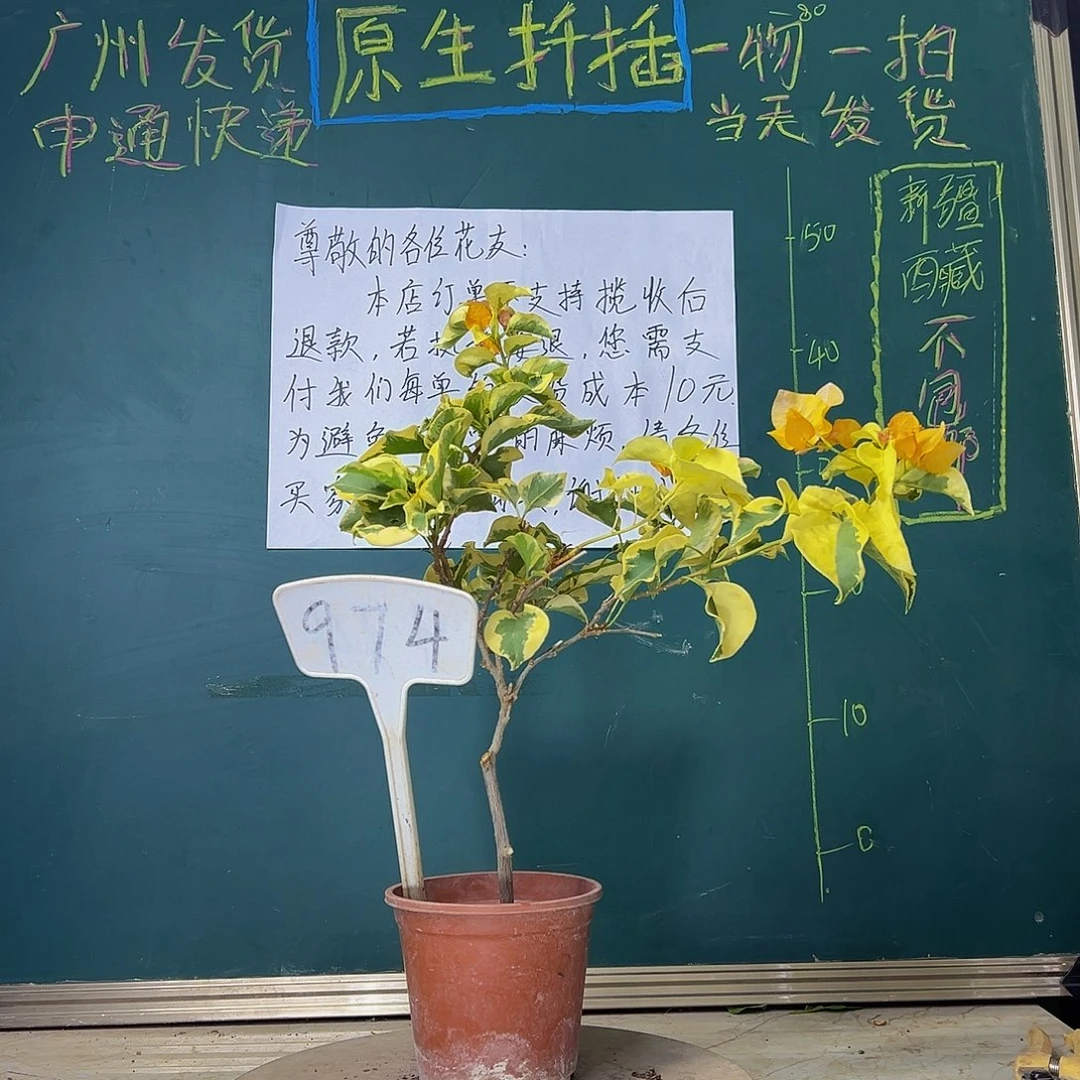 广州发货
申通快递
原生扦插
一物一拍
当天发货
80
50
40
10
0
新疆
西藏
不
同
尊敬的各位花友:
本店订单 支持揽收后
退款,若 退,您需支
付我们每单 成本10元
为避 麻烦 请各位
买家
974